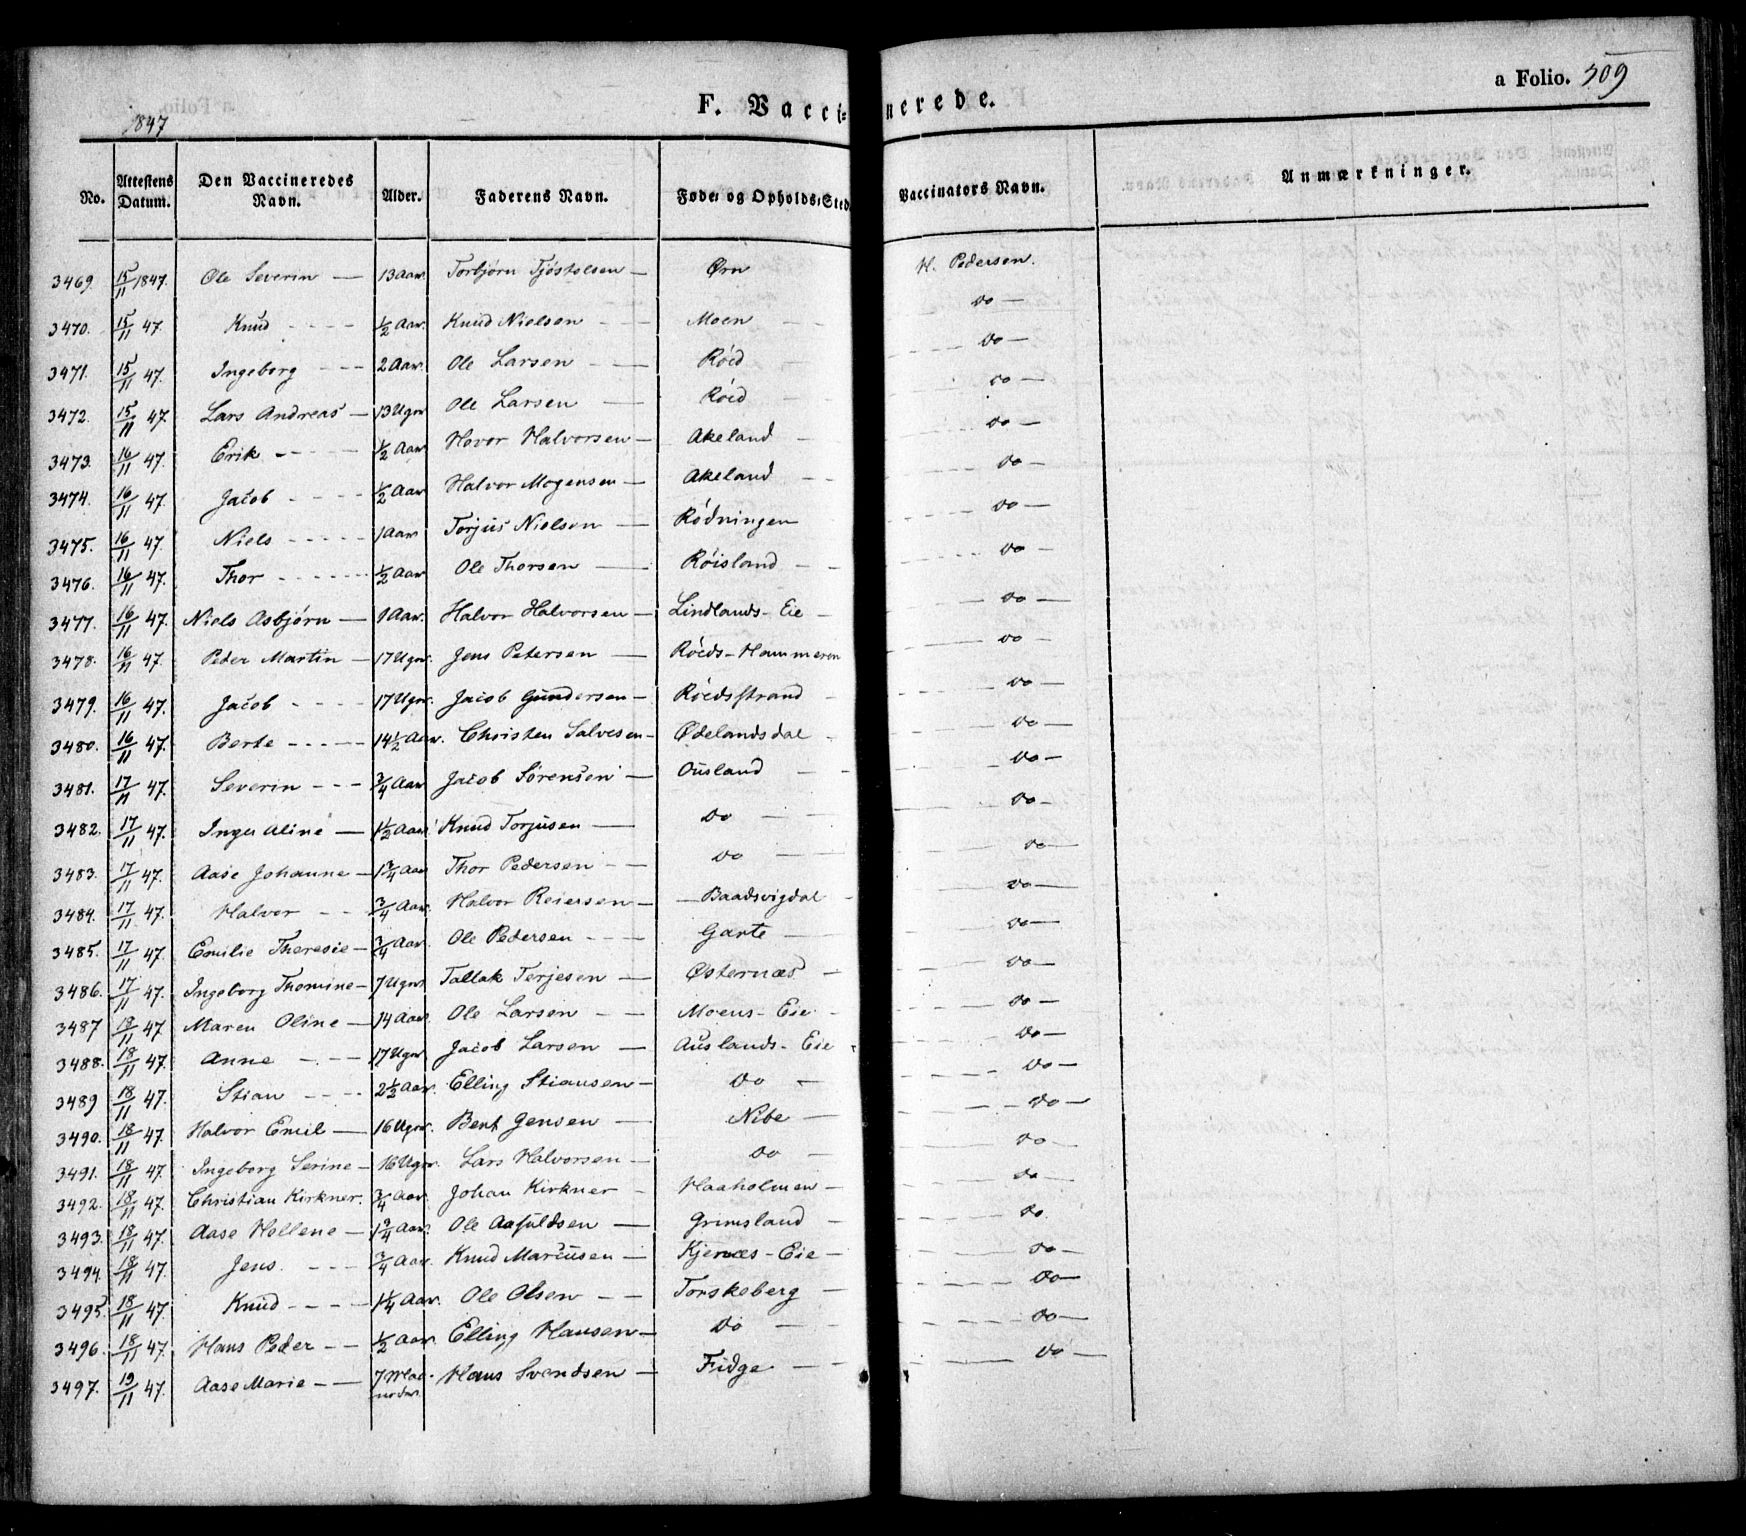 a Folio. 309
F. Vaccinerede.
1847
No. Attestens Datum. Den Vaccineredes Navn. Alder. Faderens Navn. Føde- og Opholds-Sted. Vaccinators Navn. Anmærkninger.
3469. 15/11 1847. Ole Severin — 13 Aar. Torbjørn Tjøstolsen — Ørn H. Pedersen.
3470. 15/11 47. Knud - - - - 1/2 Aar. Knud Nielsen - - Moen - - do —
3471. 15/11 47. Ingeborg - - - 2 Aar. Ole Larsen — Røed - do —
3472. 15/11 47. Lars Andreas — 13 Ugr Ole Larsen — Røed - do —
3473. 16/11 47. Erik - - - - 1/2 Aar Hovor Halvorsen — Akeland - do —
3474. 16/11 47. Jacob - - - - 1/2 Aar Halvor Mogensen — Akeland - - do —
3475. 16/11 47. Niels - - - - - 1 Aar Torjus Nielsen — Rødningen do —
3476. 16/11 47. Thor - - - - - 1/2 Aar Ole Thorsen — Røisland - - do —
3477. 16/11 47. Niels Asbjørn — 1 Aar. Halvor Halvorsen — Lindlands-Eie - do —
3478. 16/11 47. Peder Martin — 17 Ugr. Jens Petersen — Røeds-Hammeren do —
3479. 16/11 47. Jacob - - - - 17 Ugr. Jacob Gundersen — Røedsstrand - do —
3480. 16/11 47. Berte - - - - 14 1/2 Aar. Christen Salvesen — Ødelandsdal - do —
3481. 17/11 47. Severin - - - 3/4 Aar Jacob Sørensen — Ousland - - do —
3482. 17/11 47. Inger Aline — 1 1/2 Aar Knud Torjusen — do - - do —
3483. 17/11 47. Aase Johanne — 1 3/4 Aar Thor Pedersen - - do - - do —
3484. 17/11 47. Halvor - - 3/4 Aar. Halvor Reiersen — Baadsvigdal - do —
3485. 17/11 47. Emilie Theresie — 3/4 Aar. Ole Pedersen - - - Garte — do —
3486. 17/11 47. Ingeborg Thomine — 7 Ugr Tallak Terjesen — Østernæs - do —
3487 18/11 47. Maren Oline — 14 Aar. Ole Larsen - - Moens-Eie - do —
3488. 18/11 47. Anne - - - 17 Ugr Jacob Larsen — Auslands-Eie do —
3489 18/11 47. Stian - - - - 2 1/2 Aar. Elling Stiansen — do - do —
3490. 18/11 47. Halvor Emil — 16 Ugr. Bent Jensen — Nibe — do —
3491. 18/11 47. Ingeborg Serine — 16 Ugr. Lars Halvorsen — do - do —
3492. 18/11 47. Christian Kirkner. 3/4 Aar. Johan Kirkner - Haaholmen — do —
3493. 18/11 47. Aase Hellene — 1 3/4 Aar. Ole Aasuldsen — Grimsland - do
3494. 18/11 47. Jens. - - - 3/4 Aar. Knud Marcusen — Kjernæs-Eie — do —
3495 18/11 47. Knud - - - - 1 1/4 Aar. Ole Olsen - - Torskeberg — do —
3496. 18/11 47. Hans Peder - - 1/2 Aar Elling Hansen — do - - do —
3497. 19/11 47. Aase Marie - — 7 Maaneder. Hans Svendsen — Fidge - - - do —